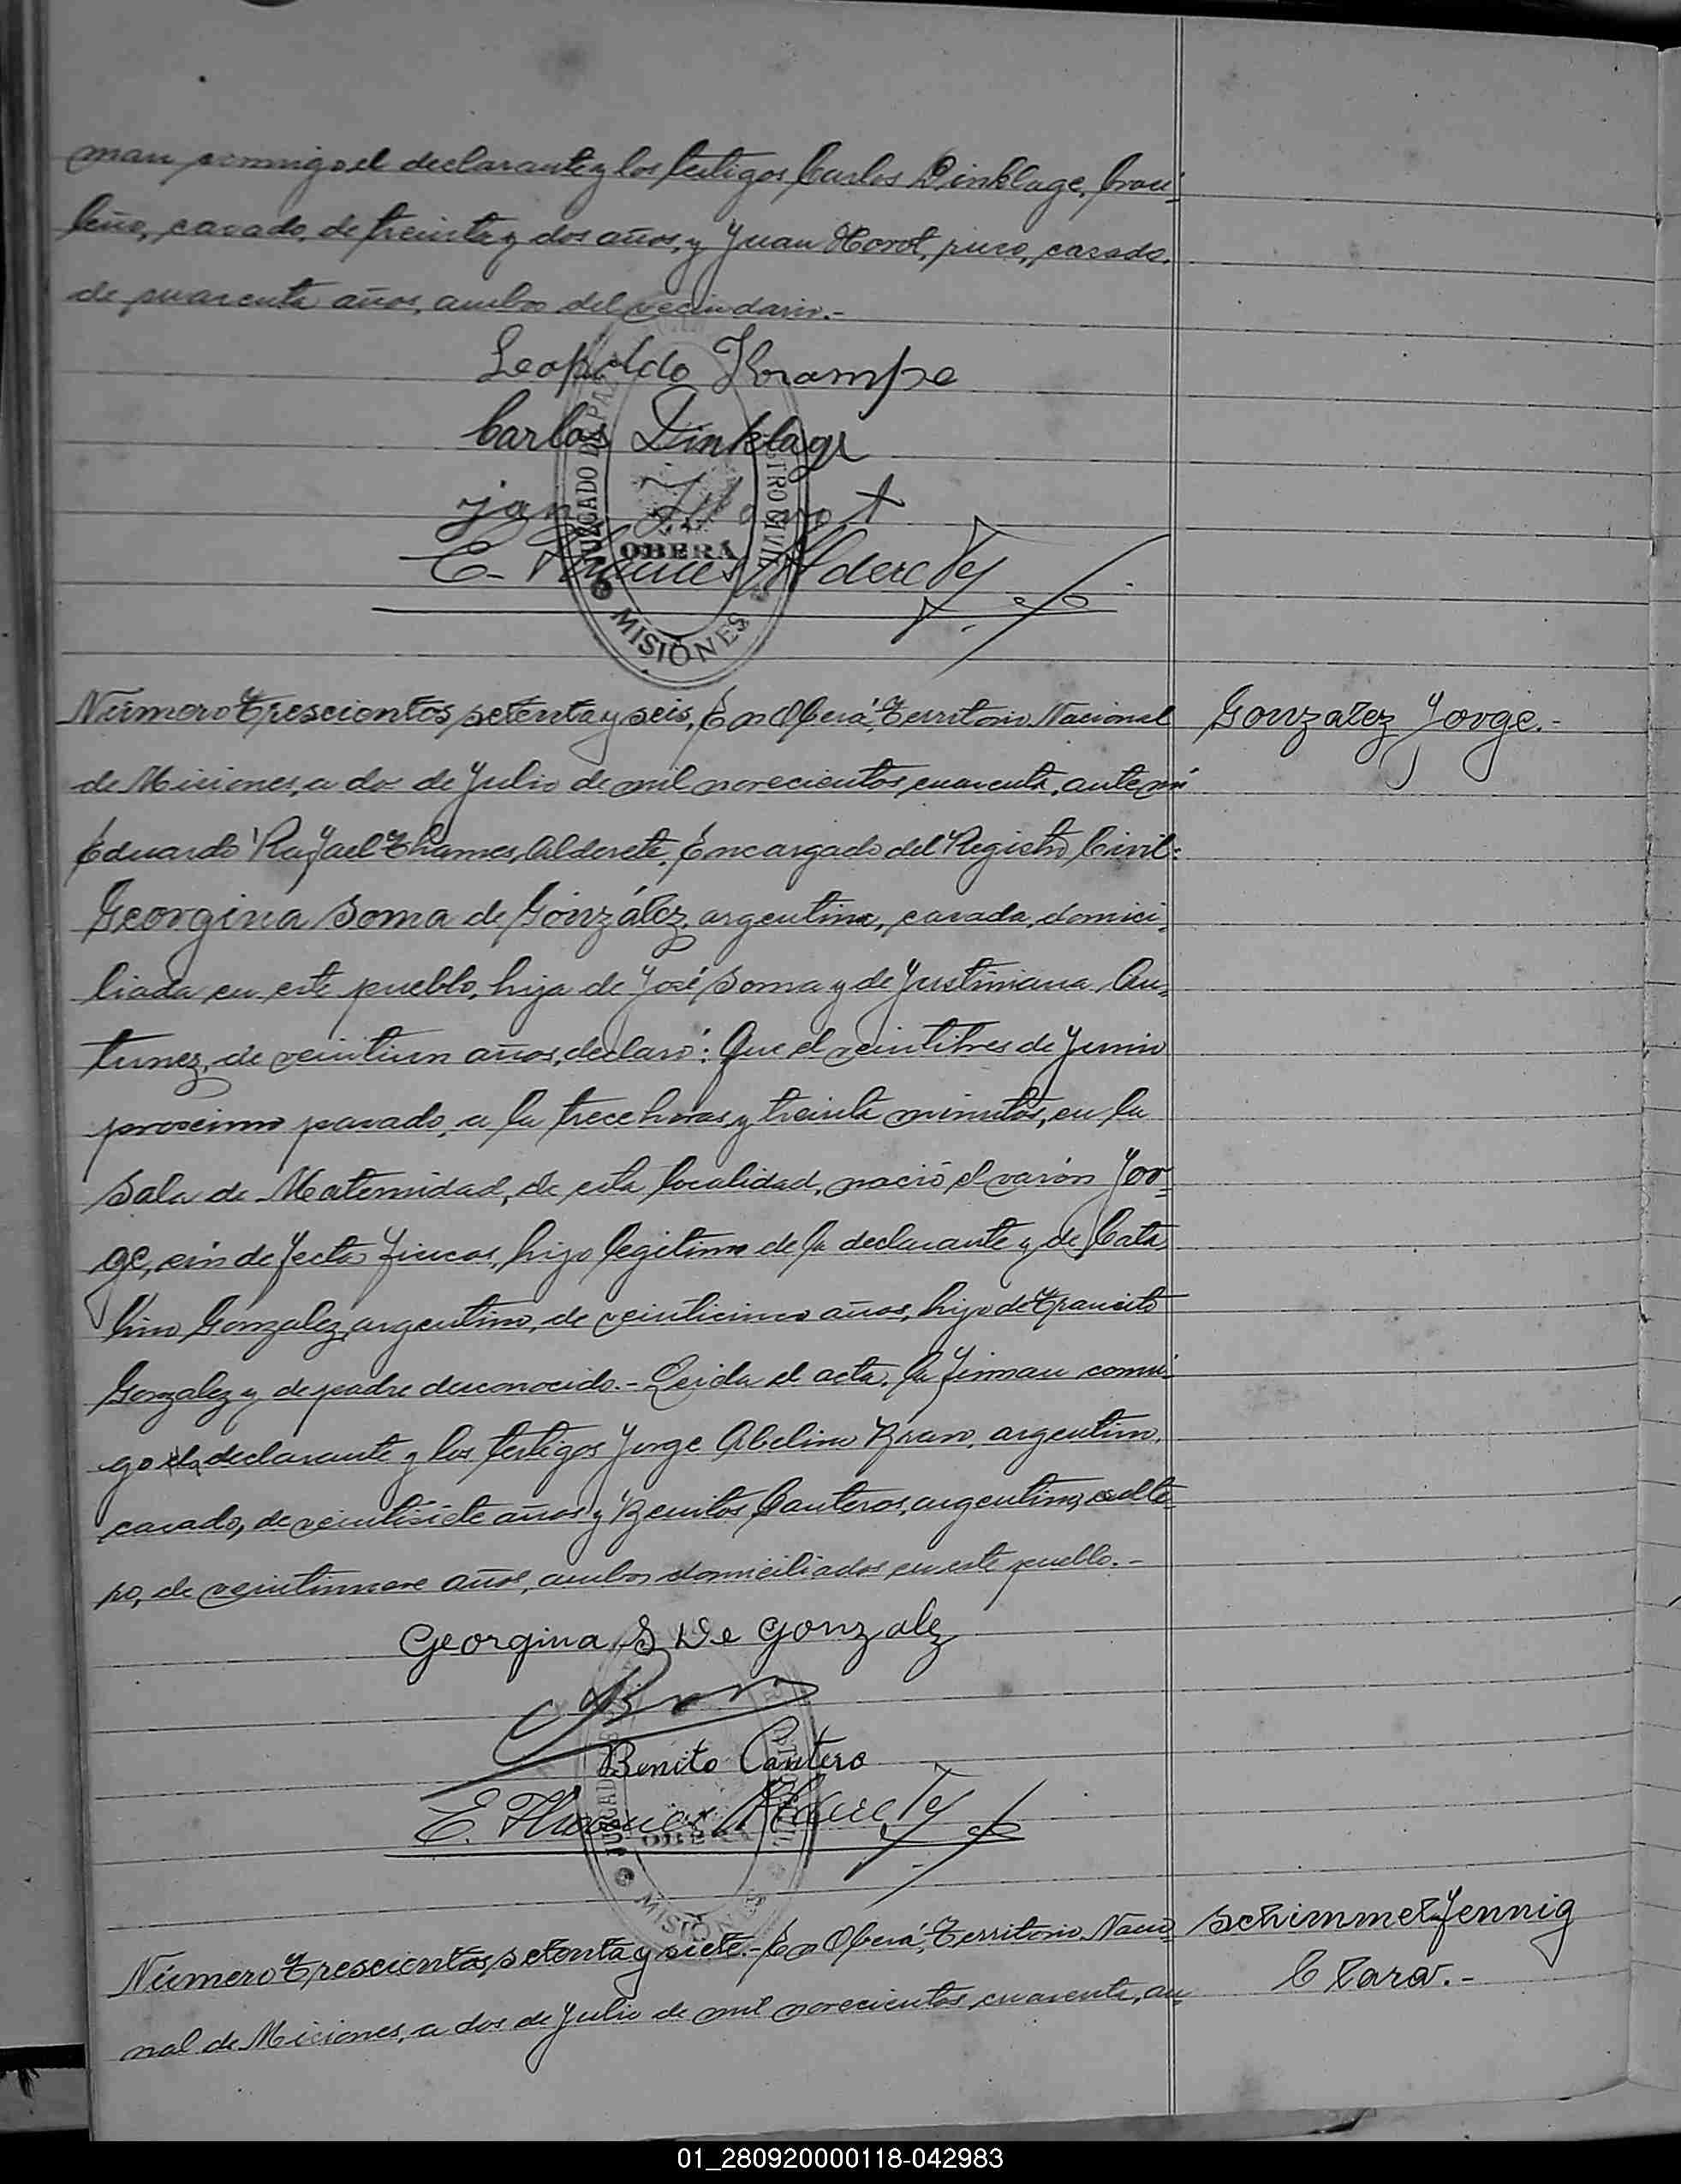 man conmigo el declarante y los testigos Carlos Dinklage, brasi=
leño, casado, de treinta y dos años, y Juan Horot, ruso, casado,
de cuarenta años, ambos del vecindario.-
Leopoldo Krampe
Carlos Dinklage
jan Horot
E. Thames Alderete
JUZGADO DE PAZ
OBERÁ
MISIONES
Número Trescientos setenta y seis, En Oberá, Territorio Nacional
Gonzalez Jorge.-
de Misiones, a dos de Julio de mil novecientos cuarenta, ante mi
Eduardo Rafael Thames Alderete, Encargado del Registro Civil:
Georgina Soma de González, argentina, casada, domici=
liada en este pueblo, hija de José Soma y de Justiniana An=
tunez, de veintiun años, declaró: Que el veintitres de Junio
proximo pasado, a la trece horas y treinta minutos, en la
Sala de Maternidad, de esta localidad, nació el varón Jor=
ge, sin defectos fisicos, hijo legitimo de la declarante y de Cata=
lino Gonzalez, argentino, de veinticinco años, hijo de Transito
Gonzalez y de padre desconocido.- Leida el acta, la firman conmi=
go la declarante y los testigos Jorge Abelino Bravo, argentino,
casado, de veintisiete años y Benitos Canteros, argentino, solte=
ro, de veintinueve años, ambos domiciliados en este pueblo.-
Georgina S De Gonzalez
Benito Cantero
E. Thames Alderete
OBERÁ
MISIONES
Número Trescientos setenta y siete.- En Oberá, Territorio Nacio=
Schimmelfennig
Clara.-
nal de Misiones, a dos de Julio de mil novecientos cuarenta, an=
01_280920000118-042983